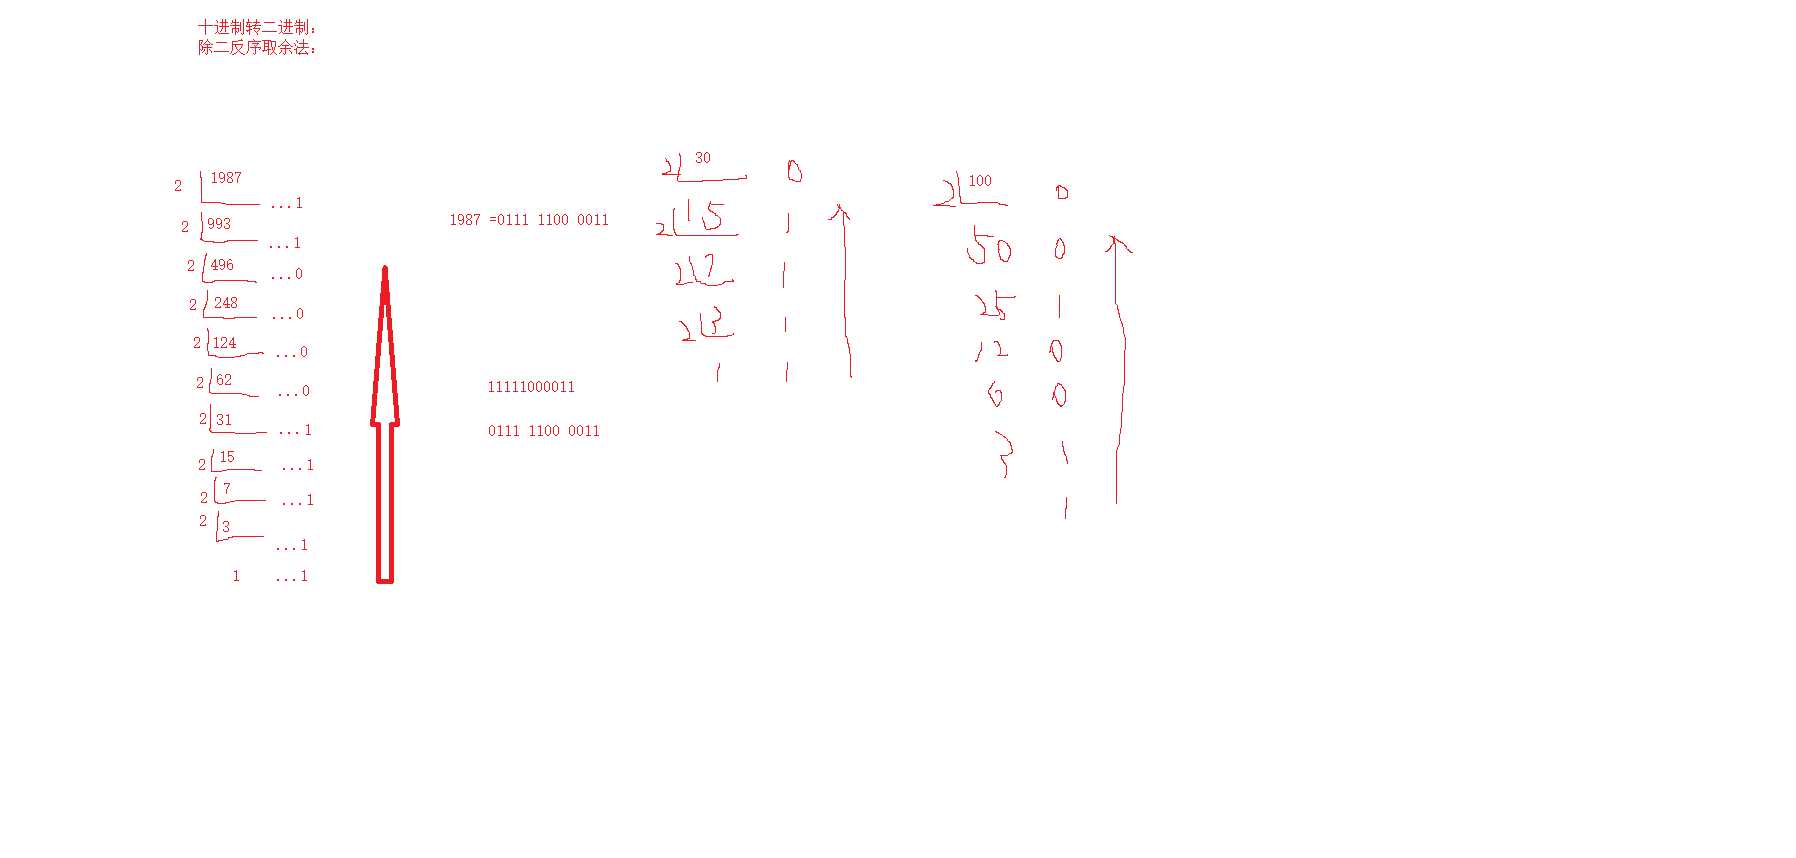 十进制转二进制：
除二反序取余法：
2 1987 ...1
2 993 ...1
2 496 ...0
2 248 ...0
2 124 ...0
2 62 ...0
2 31 ...1
2 15 ...1
2 7 ...1
2 3 ...1
1 ...1
1987 =0111 1100 0011
11111000011
0111 1100 0011
2 30 0
2 15 1
2 7 1
2 3 1
1 1
2 100 0
50 0
25 1
12 0
6 0
3 1
1